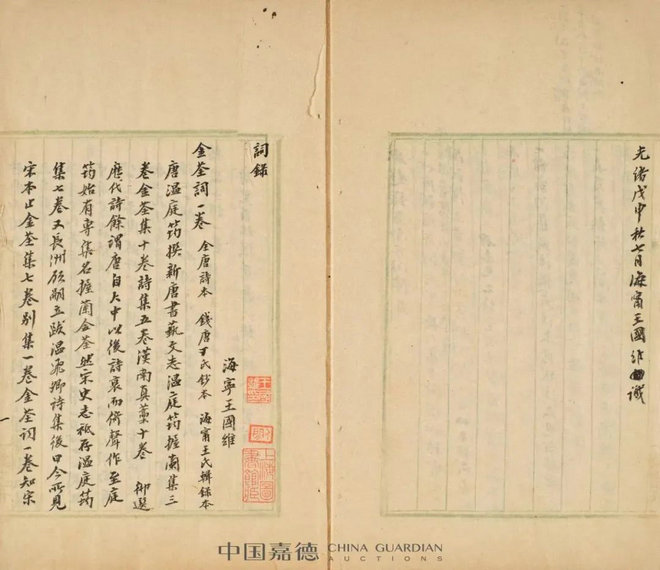 光緒戊申秋七月海甯王國維識
詞錄
海寧王國維
金荃詞一卷 全唐詩本 錢唐丁氏鈔本 海甯王氏輯錄本
唐溫庭筠撰新唐書藝文志溫庭筠握蘭集三
卷金荃集十卷詩集五卷漢南真藁十卷 御選
歷代詩餘謂唐自大中以後詩衰而倚聲作至庭
筠始有專集名握蘭金荃然宋史志祇存溫庭筠
集七卷又長洲顧嗣立跋溫飛卿詩集後曰今所見
宋本止金荃集七卷別集一卷金荃詞一卷知宋
一
上海圖書館藏
中国嘉德 CHINA GUARDIAN
AUCTIONS